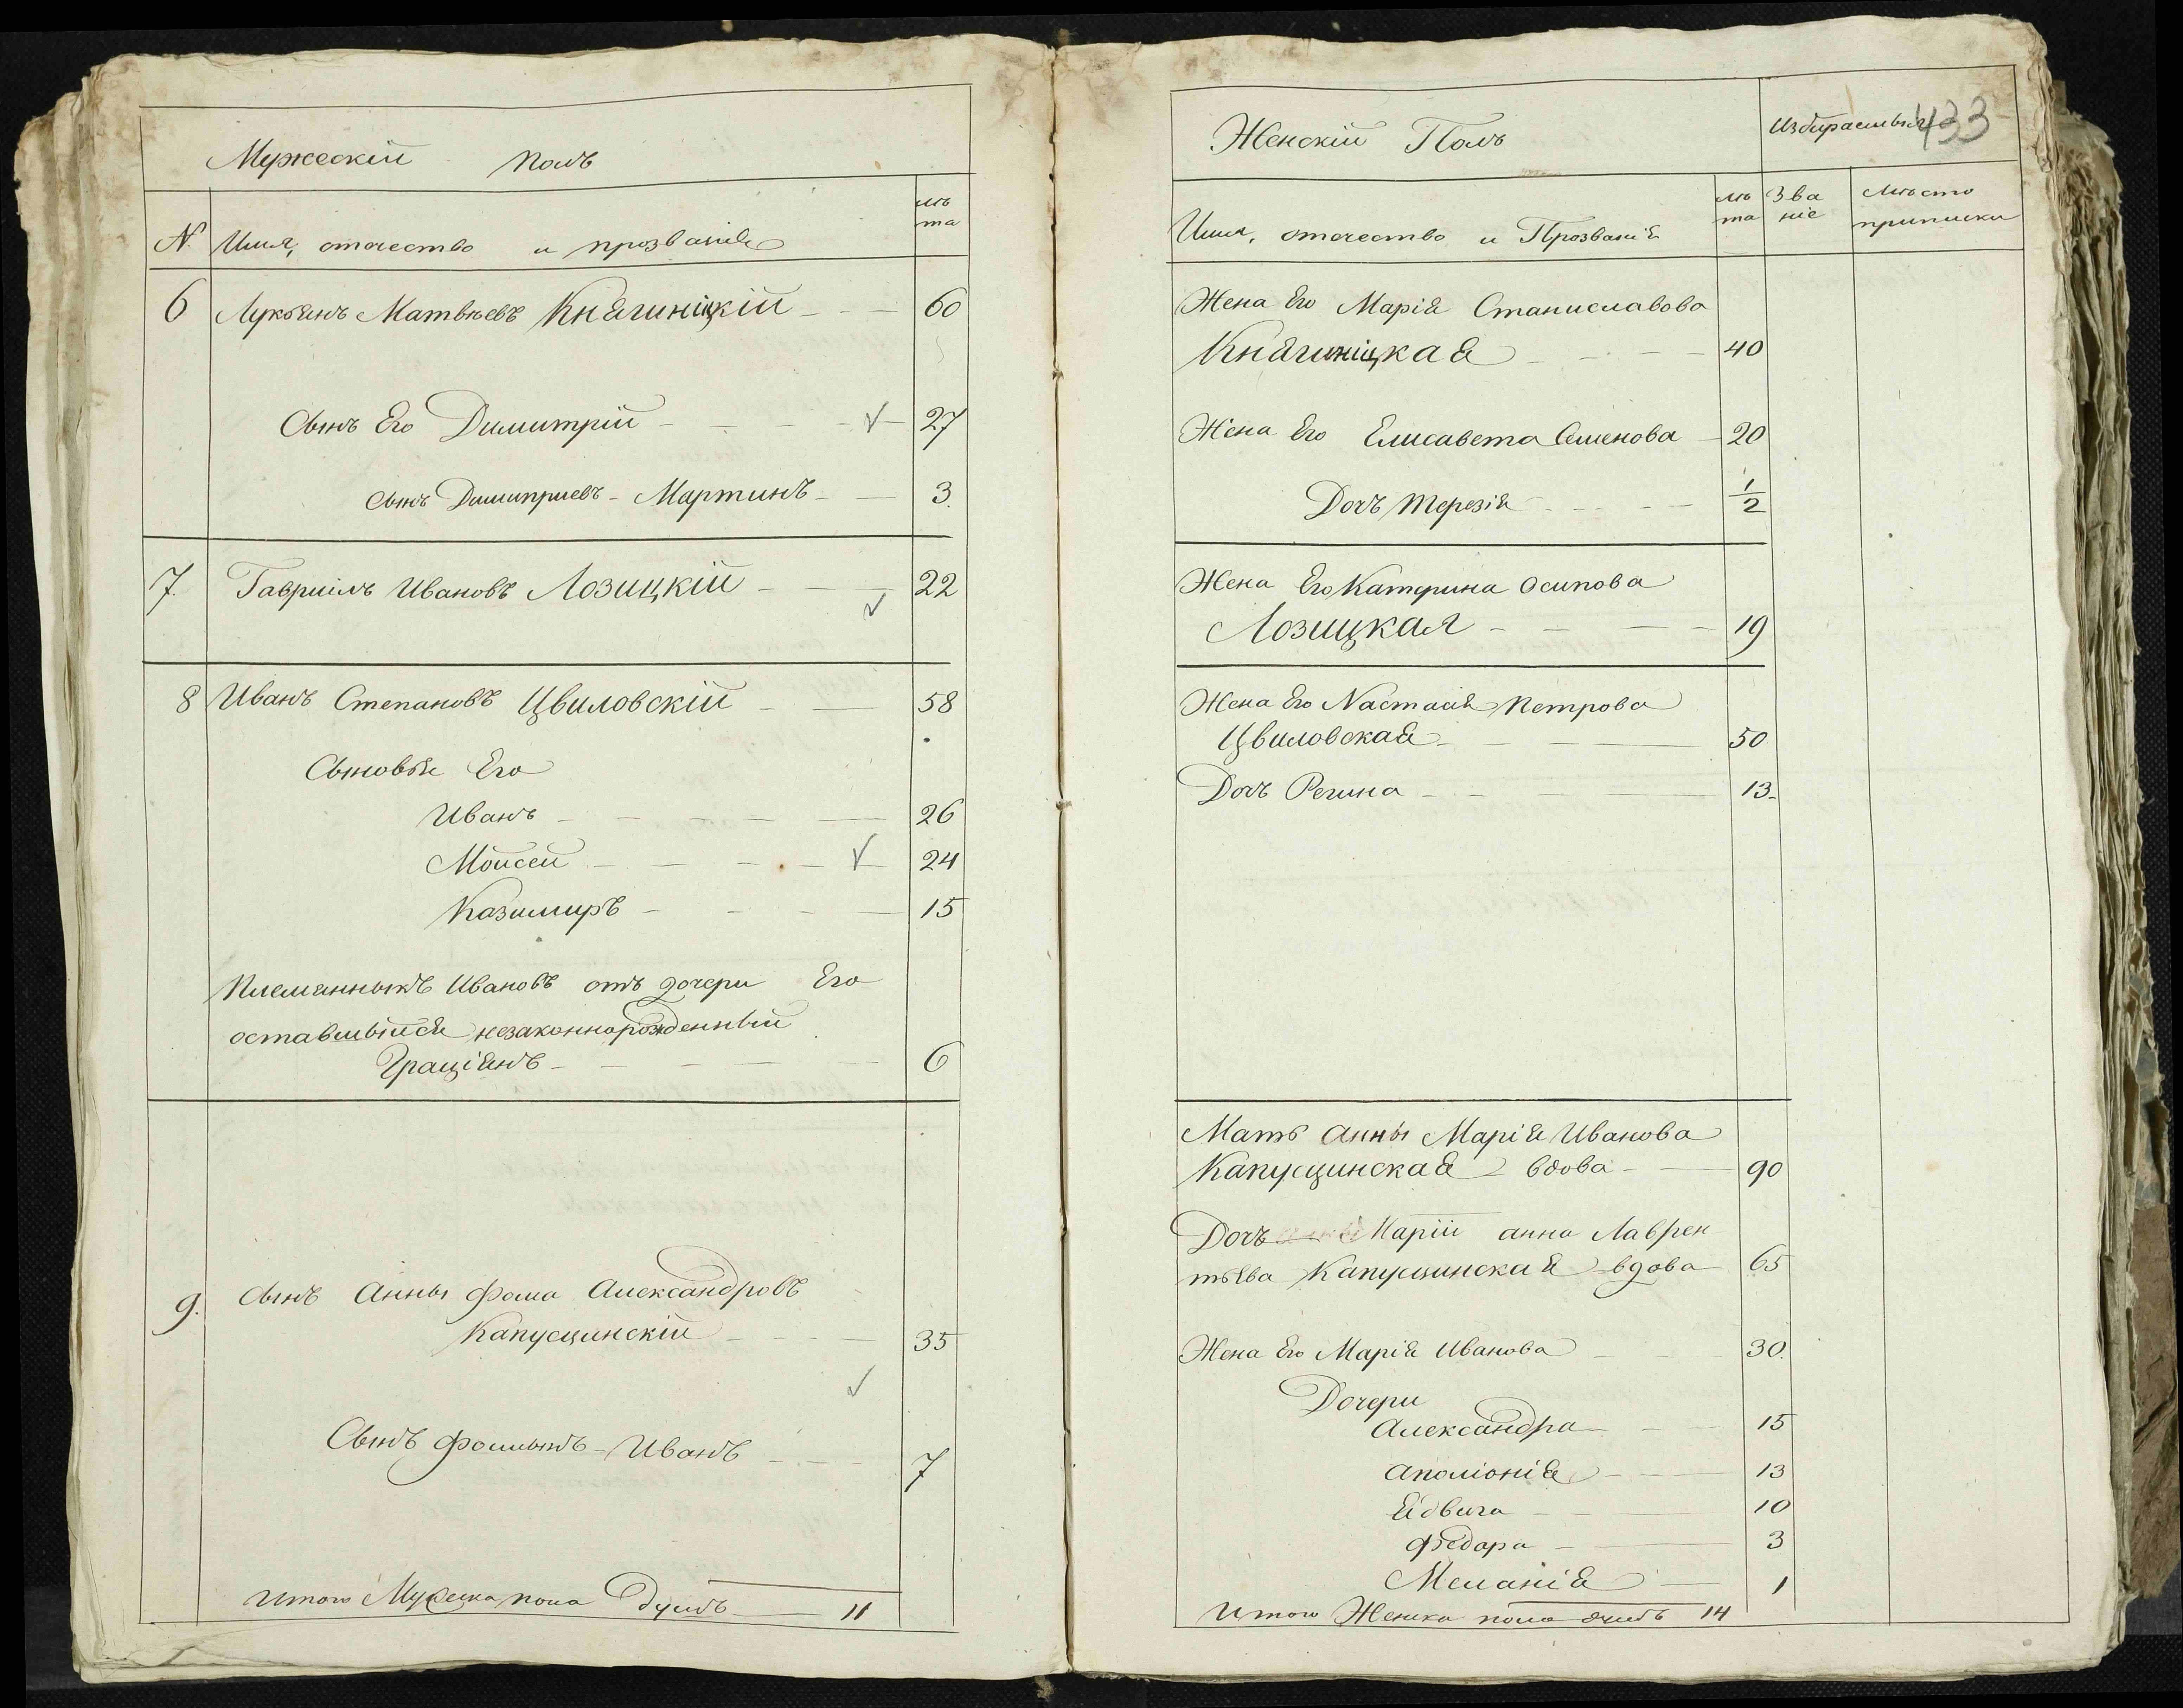 Мужескій полъ
лѣ
та
N. Имя, отечество и прозваніе
6 Лукьянъ Матвѣевъ Княгиницкій 60
Сынъ Его Димитрій 27
Сынъ Димитриевъ - Мартинъ 3.
7. Гавриилъ Ивановъ Лозицкій 22
8 Иванъ Степановъ Цвиловскій 58
Сыновья Его
Иванъ 26
Мойсей 24
Казимиръ 15
Племянныкъ Ивановъ отъ дочери Его
оставшыйся незаконнорожденный
Граціянъ 6
9. Сынъ Анны Фома Александровъ
Капусцинскій 35
Сынъ Фомынъ - Иванъ 7
Итого Мужеска пола Душъ 11
Женскій Полъ
Избираемыя
433
Имя, отечество и Прозваніе
лѣ
та
Зва
ніе
Мѣсто
приписки
Жена Его Марія Станиславова
Княгиницкая 40
Жена Его Елисавета Семенова 20
Дочъ Терезія 1/2
Жена Его Катерина Осипова
Лозицкая 19
Жена Его Настасія Петрова
Цвиловская 50
Дочъ Регина 13
Мать Анны Марія Иванова
Капусцинская вдова 90
Дочъ Маріи Анна Лаврен
тьева Капусцинская вдова 65
Жена Его Марія Иванова 30.
Дочери
Александра 15
Аполіонія 13
Ядвига 10
Федора 3
Меланія 1
Итого Женска пола душъ 14